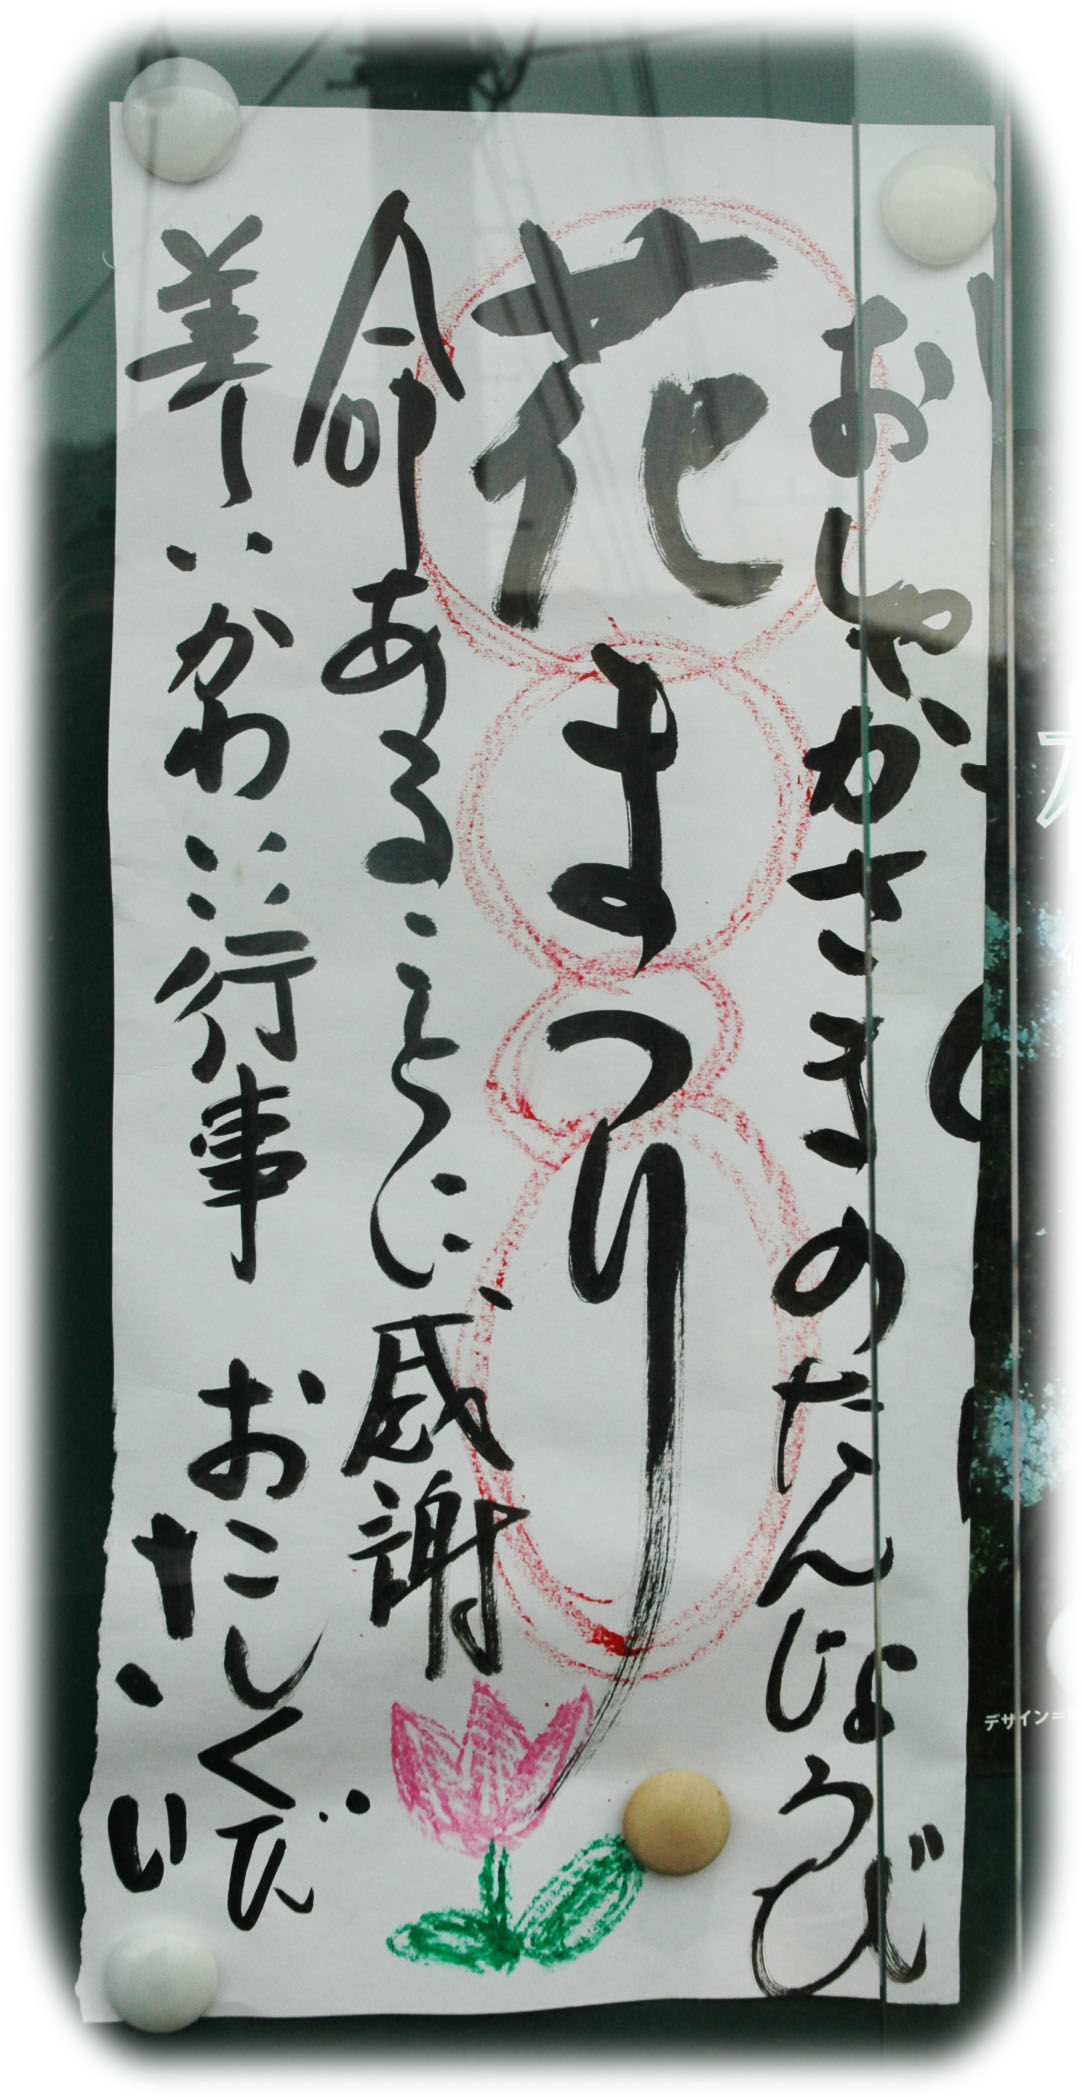 おしゃかさまのたんじょうび
花まつり
命あることに感謝
美しいかわいい行事 おこしくだ
さい
デザイン=